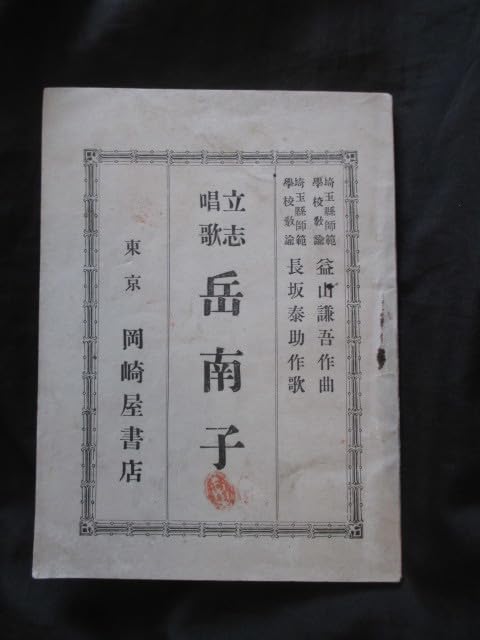 埼玉縣師範學校敎諭 益山謙吾作曲
埼玉縣師範學校敎諭 長坂泰助作歌
立志唱歌 岳南子
東京 岡崎屋書店